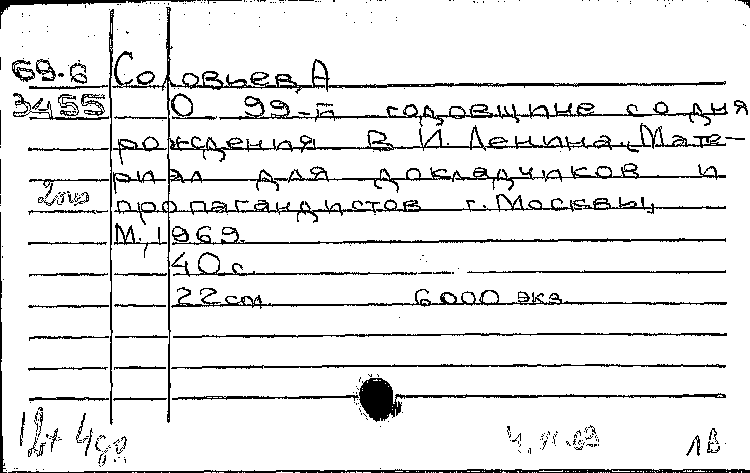 69-6 Соловьев, А
3455 О 99-й годовщине со дня
рождения В. И. Ленина. Мате-
риал для докладчиков и
пропагандистов г. Москвы,
М., 1969.
40 с.
22 см. 6000 экз.